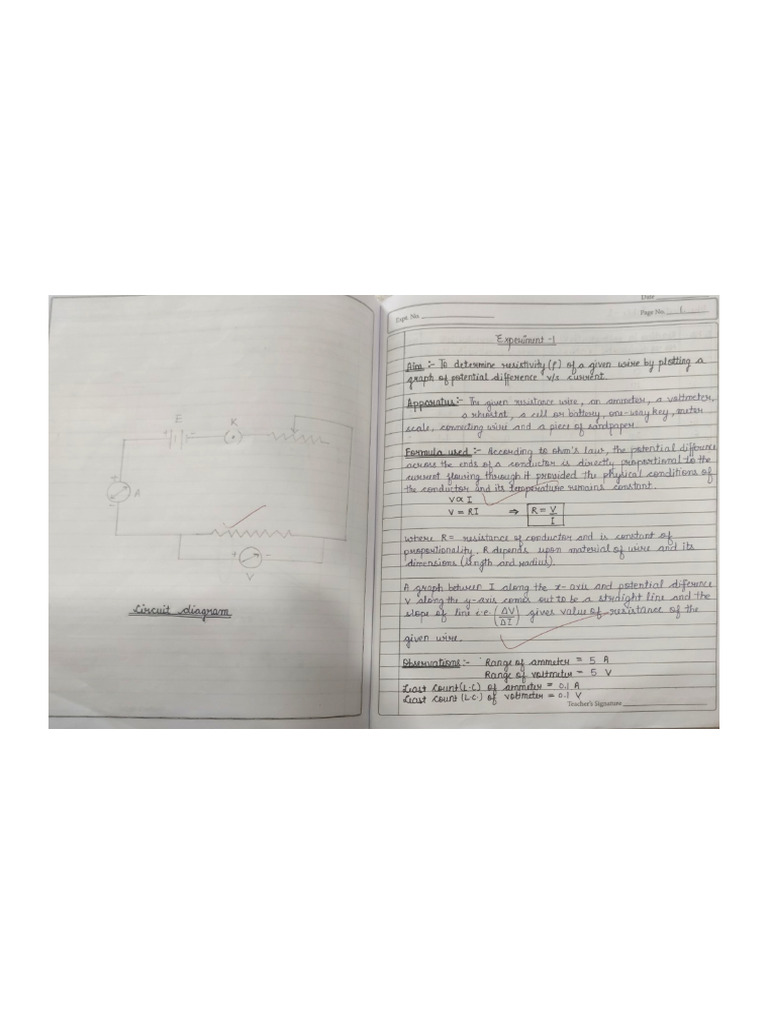 E
K
+
-
+
A
-
+
-
V
Circuit diagram
Date
Expt. No.
Page No. 1
Experiment -1
Aim :- To determine resistivity (ρ) of a given wire by plotting a
graph of potential difference v/s current.
Apparatus :- The given resistance wire, an ammeter, a voltmeter,
a rheostat, a cell or battery, one-way key, meter
scale, connecting wire and a piece of sandpaper.
Formula used :- According to ohm's law, the potential difference
across the ends of a conductor is directly proportional to the
current flowing through it provided the physical conditions of
the conductor and its temperature remains constant.
V ∝ I
V = RI ⇒ R = V/I
where R = resistance of conductor and is constant of
proportionality. R depends upon material of wire and its
dimensions (length and radius).
A graph between I along the x-axis and potential diference
V along the y-axis comes out to be a straight line and the
slope of line i.e. (ΔV/ΔI) gives value of resistance of the
given wire.
Observations :- Range of ammeter = 5 A
Range of voltmeter = 5 V
Least count (L.C) of ammeter = 0.1 A
Least count (L.C.) of voltmeter = 0.1 V
Teacher's Signature